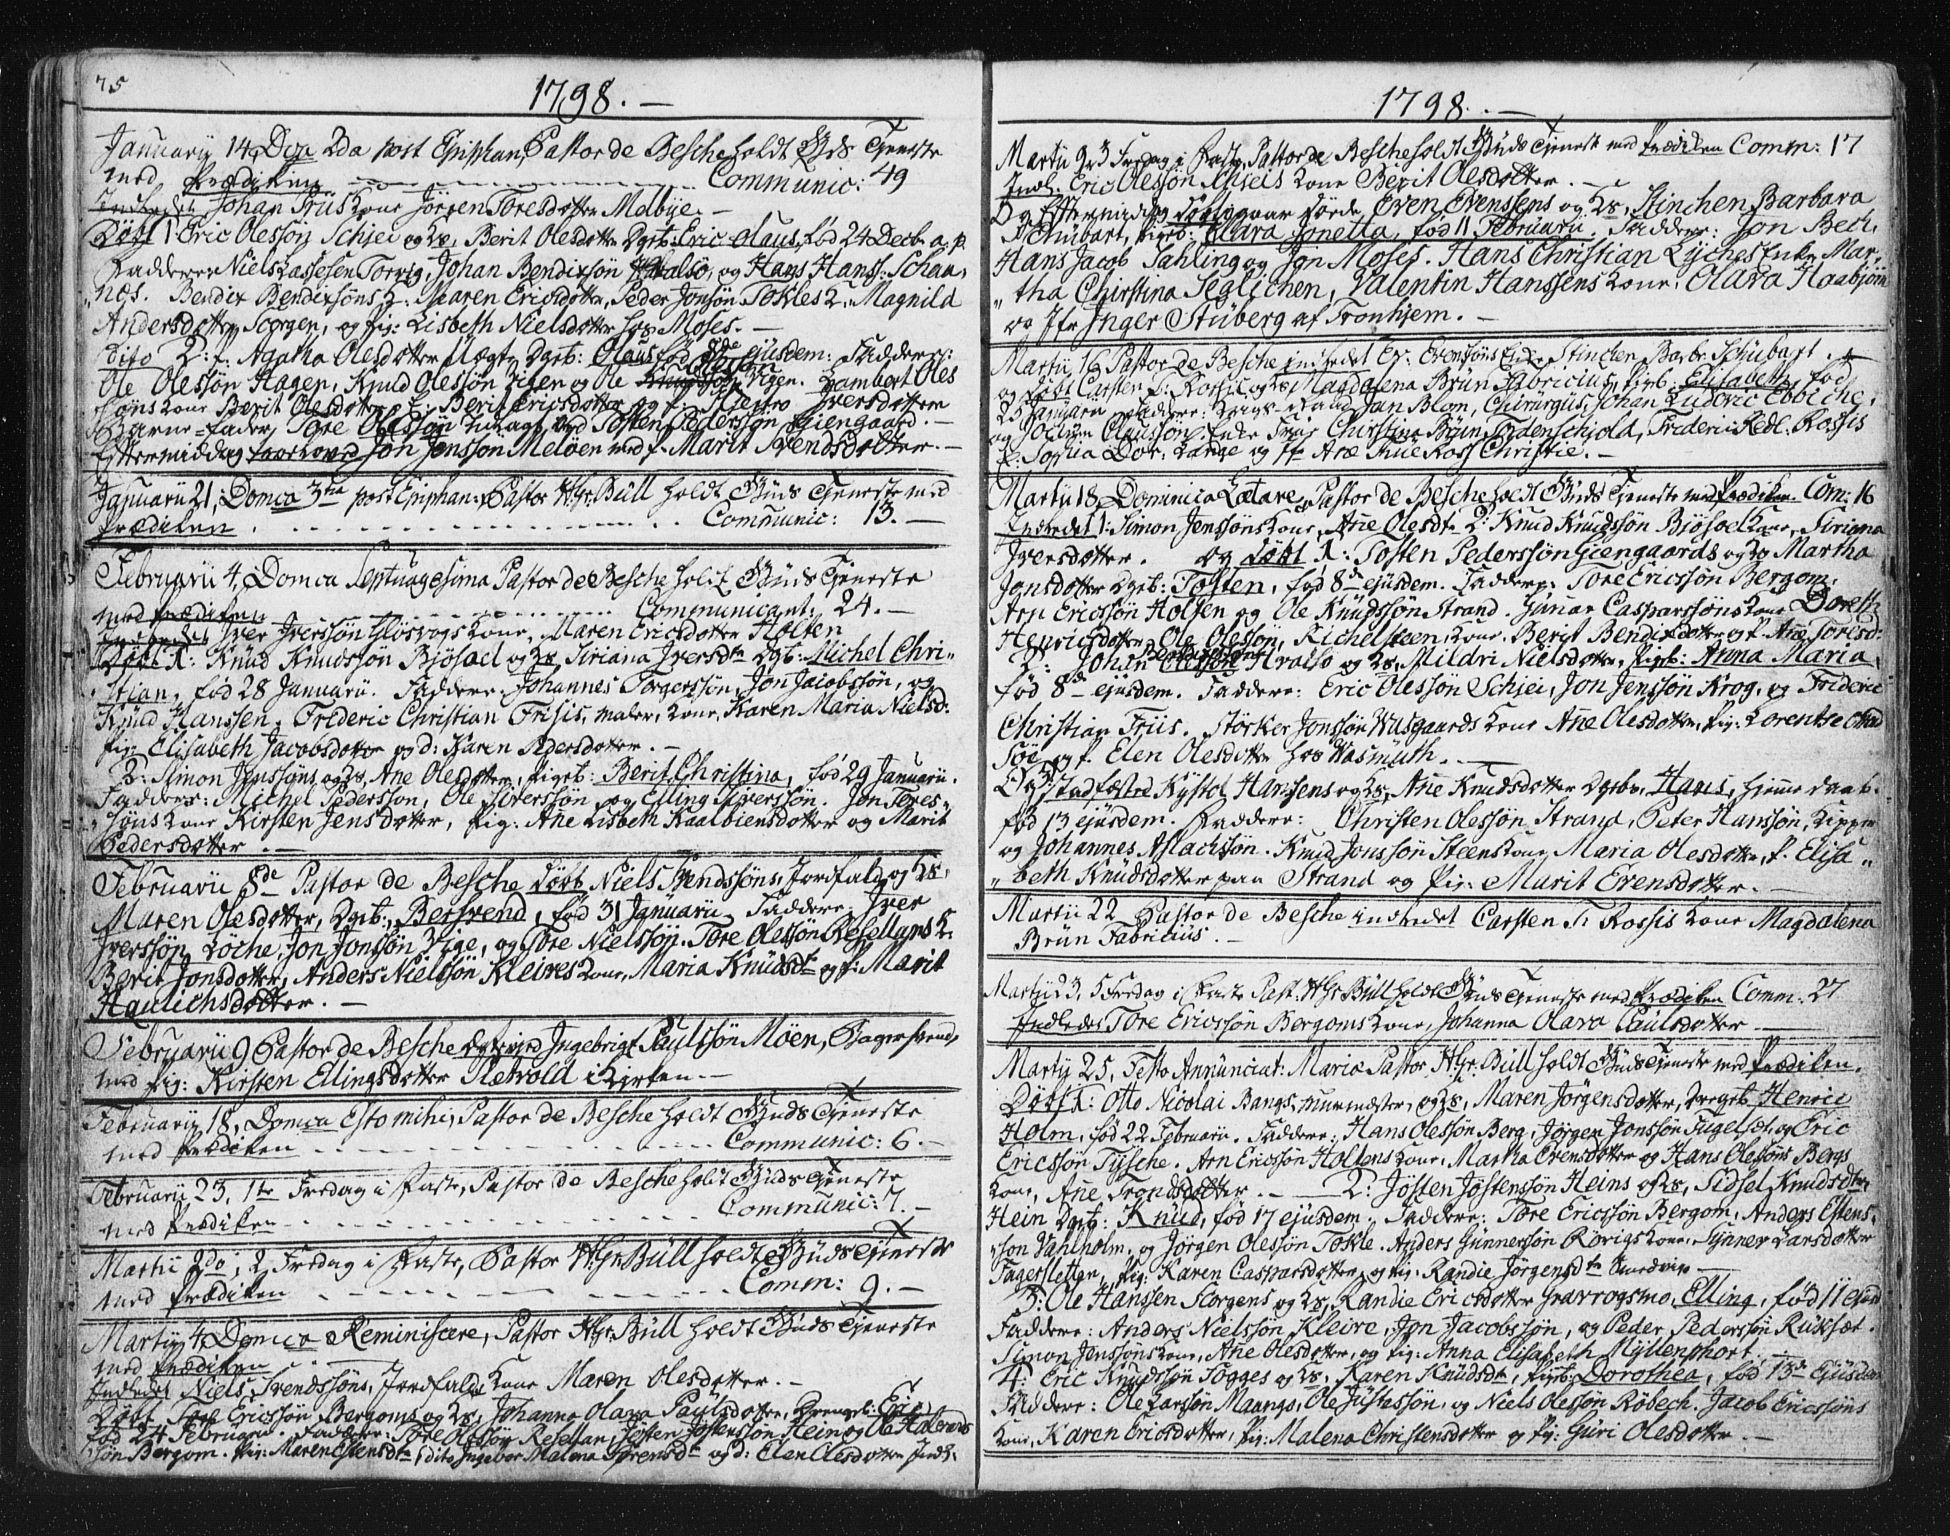 75
1798. —
Januarii 14, Dom 2da post Epiphan, Pastor de Besche holdt Guds Tjeneste
med Prædiken Communic: 49
Indledet Johan Friis Kone Jørgen Toresdotter Melbye. —
Døbt 1 Eric Olessøn Schjei og Hs, Berit Olesdotter Dgeb: Eric Olaus, fød 24 Decbr a. p.
Faddere Niels Torvig, Johan Bendixsøn Hvalsø, og Hans Hanss: Schaa,
nes. Bendix Bendixsøns K. Maren Ericsdotter, Peder Jonsøn Tokles K. Magnild
Andersdotter Scorgen, og Pig: Lisbeth Nielsdotter hos Moses. —
dito 2: f. Agatha Olesdotter Uægte Dgeb: Olaus fød 8de ejusdem: Faddere:
Ole Olessøn Hagen, Knud Olessøn Vigen og Ole Olessøn Vigen. Lambert Oles
søns Kone Berit Olesdotter, f: Berit Ericsdotter og f: Iversdotter
Barne-Fader, Tore Olessøn udlagt ved Tosten Pedersøn Giengaard. —
Eftermiddag troeloved Jon Jenssøn Meløen med f. Marit Svendsdotter. —
Januarii 21, Domca 3tia post Epiphan: Pastor Hgr. Büll holdt Guds Tjeneste med
Prædiken. Communic: 13. —
Februarii 4, Domca Septuagesima Pastor de Besche holdt Guds Tjeneste
med Prædiken Communicant: 24. —
Indledet Iver Iverssøn Gløsvogs Kone, Maren Ericsdotter Holten
Døbt 1: Knud Knudssøn Bjøsæl og Hs, Siriana Iversdtr Dgb: Michel Chri,
stian, fød 28 Januarii. Faddere: Johannes Torgerssøn, Jon Jacobssøn, og
Knud Hanssen, Frederic Christian Frisis, maler, Kone, Karen Maria Nielsd:
Pig: Elisabeth Jacobsdotter og d: Karen Pedersdotter. —
2: Simon Jenssøns og Hs, Ane Olesdotter, Pigeb: Berit Christina, fød 29 Januarii.
Faddere: Michel Pedersson, Ole Siverssøn og Elling Siverssøn. Jon Tores
søns Kone Kirsten Jensdotter, Pig: Ane Lisbeth Kaalbiensdotter og Marit
Pedersdotter. —
Februarii 8de Pastor de Besche døbt Niels Svendssøns, Jordfald og Hs,
Maren Olesdotter, Dgeb: Bersvend, fød 31 Januarii. Faddere: Iver
Iverssøn Løche, Jon Jonssøn Vige, og Tore Nielssøn. Tore Olessøn Resellans K.
Berit Jonsdotter, Anders Nielssøn Kleives Kone, Maria Knudsdtr og f: Marit
Haurichsdotter. —
Februarii 9 Pastor de Besche Ingebrigt Paulssøn Møen, Bagersvend,
med Pig: Kirsten Ellingsdotter Retvold i Kirken. —
Februarii 18, Domca Esto mihi, Pastor de Besche holdt Guds Tjeneste
med Prædiken Communic: 6. —
Februarii 23, 1te Fredag i Faste, Pastor de Besche holdt Guds Tjeneste
med Prædiken Communic: 7. —
Martii 2do, 2 Fredag i Faste, Pastor Hgr Büll holdt Guds Tjeneste
med Prædiken Comm: 9. —
Martij 4 Domca Reminiscere, Pastor Hgr Büll holdt Guds Tjeneste
med Prædiken
Indledet Niels Svendssøns, Jordfalds Kone Maren Olesdotter. —
Døbt Tore Ericssøn Bergoms og Hs, Johanna Olava Paulsdotter, Drengeb: Eric,
fød 24 Februarii. Faddere: Tore Olessøn Resellan, Jøsten Jøstenssøn Hein og Ole Halvords
søn Bergom. Pig: Maren Estensdtr, dito Ingebor Malena Sørensdtr og d: Elen Olesdotter Indl.
1798. —
Martii 9de 3 Fredag i Faste, Pastor de Besche holdt Guds Tjenest med Prædiken Comm: 17
Indl. Eric Olessøn Miseis Kone Berit Olesdotter. —
Even Evensens og Hs, Stinchen Barbara
Schübart, Pigeb: Clara Jonetta, fød 11 Februarii. Faddere: Jon Bech,
Hans Jacob Sahling og Jon Moses. Hans Christian Lyches Enke Mar,
tha Christina Seglichen, Valentin Hanssens Kone, Olava Haabjørn
og Jfr Inger Stüberg af Tronhjem. —
Martij 16 Pastor de Besche indledet Ev: Evensøns Kone Stinchen Barbr Schübart. —
og døbt Carsten f: Rossis og Hs Magdalena Brün Fabricius, Pigeb: Elisabeth, fød
25 Januarii Faddere: Krigs-Raad Jan Blom, Chirurgus, Johan Ludovic Ebbiche,
og Jochum Claussøn. Enke Frue Christina Brün Tordenschjold, Frederic Redl: Rossis
f: Sophia Dor: Lange og Jfr Ane True Ross Christie. —
Martij 18 Dominica Lætare, Pastor de Besche holdt Guds Tjeneste med Prædiken. Com: 16
Indledet 1: Simon Jenssøns Kone, Ane Olesdtr 2: Knud Knudssøn Bjøsæl Kone, Siriana
Iversdotter. og døbt 1: Tosten Pederssøn Giengaards og Hs Martha
Jonsdotter Dgeb: Tosten, fød 8de ejusdem. Faddere: Tore Ericssøn Bergom,
Arn Ericssøn Holten og Ole Knudssøn Strand. Gunar Casparssøns Kone Doreth
Henrigsdotter, Ole Olessøn, Richelsteen Kone, Berit Bendixdotter og f: Ane Toresd:
2: Johan Bendixsøn Hvalsø og Hs, Mildri Nielsdotter, Pigeb: Anna Maria,
fød 8de ejusdem. Faddere: Eric Olessøn Schjei, Jon Jenssøn Krog, og Frideric
Christian Friis. Størker Jonssøn Wusgaards Kone Ane Olesdotter, Pig: Lorentse
Søe, og f. Elen Olesdotter hos Wasmuth. —
og Stadfæstet Kystol Hanssens og Hs, Ane Knudsdotter Dgebn, Hans, hjemedøbt.
fød 13 ejusdem. Faddere: Christen Olessøn Strand, Peter Hanssøn, Kipper
og Johannes Aslachsøn. Knud Jonssøn Steens Kone Maria Olesdotter, f. Elisa,,
beth Knudsdotter paa Strand og Pig: Marit Evensdotter. —
Martii 22 Pastor de Besche indledet Carsten T: Rossis Kone Magdalena
Brün Fabricius. —
Martij 23, 5 Fredag i Faste Past: Hgr Büll holdt Guds Tjeneste med Prædiken Comm: 27
Indledes Tore Ericssøn Bergoms Kone, Johanna Olava Paulsdotter
Martij 25, Festo Annunciat: Mariæ Pastor Hgr. Büll holdt Guds Tjeneste med Prædiken.
Døbt 1: Otto Nicolai Bangs, Muurmester, og Hs, Maren Jørgensdotter, Drengeb Henric
Holm, fød 22 Februarii. Faddere: Hans Olessøn Berg, Jørgen Jonssøn Fugelsæt, og Eric
Ericssøn Tysche. Arn Ericssøn Holtens Kone, Martha Evensdotter og Hans Olessøns Bergs
Kone, Ane Trondsdotter. — 2: Jøsten Jøstenssøn Heins og Hs, Sidsel Knudsdtr
Hein Dgeb: Knud, fød 17 ejusdem. Faddere: Tore Ericssøn Bergom, Anders Estens,
søn Vahlholm, og Jørgen Olessøn Tokle. Anders Gunnerssøn Rörigs Kone, Synner Larsdotter
Fagersletten, Pig: Karen Casparsdotter, og Pig: Randie Jørgensdtr Smedvig —
3: Ole Hanssen Scorgens og Hs, Randie Ericsdotter Gravrogsmo, Elling, fød 11 ejusd
Faddere: Anders Nielssøn Kleive, Jon Jacobssøn, og Peder Pederssøn Rüksæt.
Simon Jenssøns Kone, Ane Olesdotter, og Pig: Anna Elisabeth Myllenphort. —
4: Eric Knudssøn Togges og Hs, Karen Knudsdtr, Pigeb: Dorothea, fød 13de ejusdem
Faddere: Ole Larssøn Maangs, Ole Justassøn, og Niels Olessøn Röbech. Jacob Ericssøns
Kone, Karen Ericsdotter, Pig: Malena Christensdotter og Pig: Guri Olesdotter. —